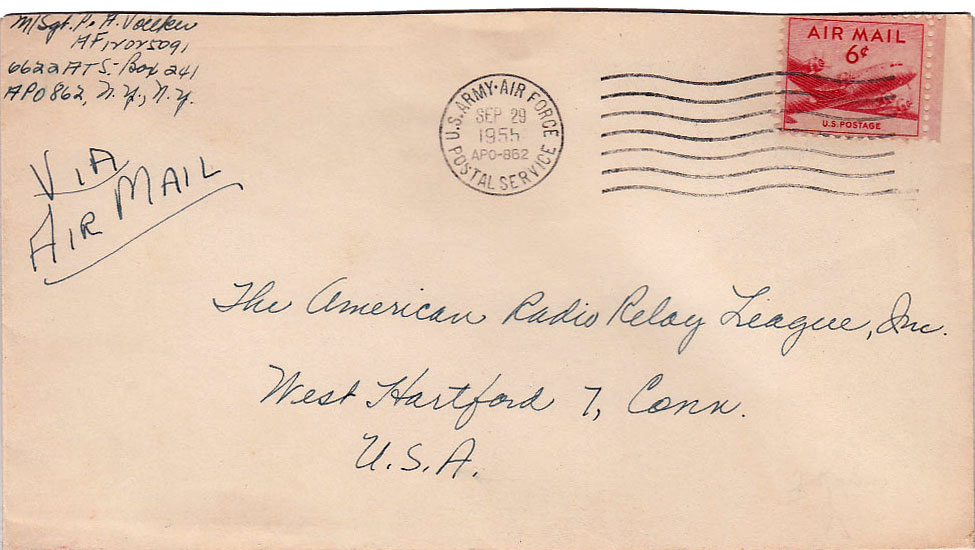 M/Sgt. P. A. Voelker
AF12025091
6622 ATS - Box 241
APO 862, N.Y., N.Y.
VIA
AIR MAIL
U.S. ARMY · AIR FORCE
SEP 29
1955
APO-862
POSTAL SERVICE
AIR MAIL
6¢
U.S. POSTAGE
The American Radio Relay League, Inc.
West Hartford 7, Conn.
U.S.A.